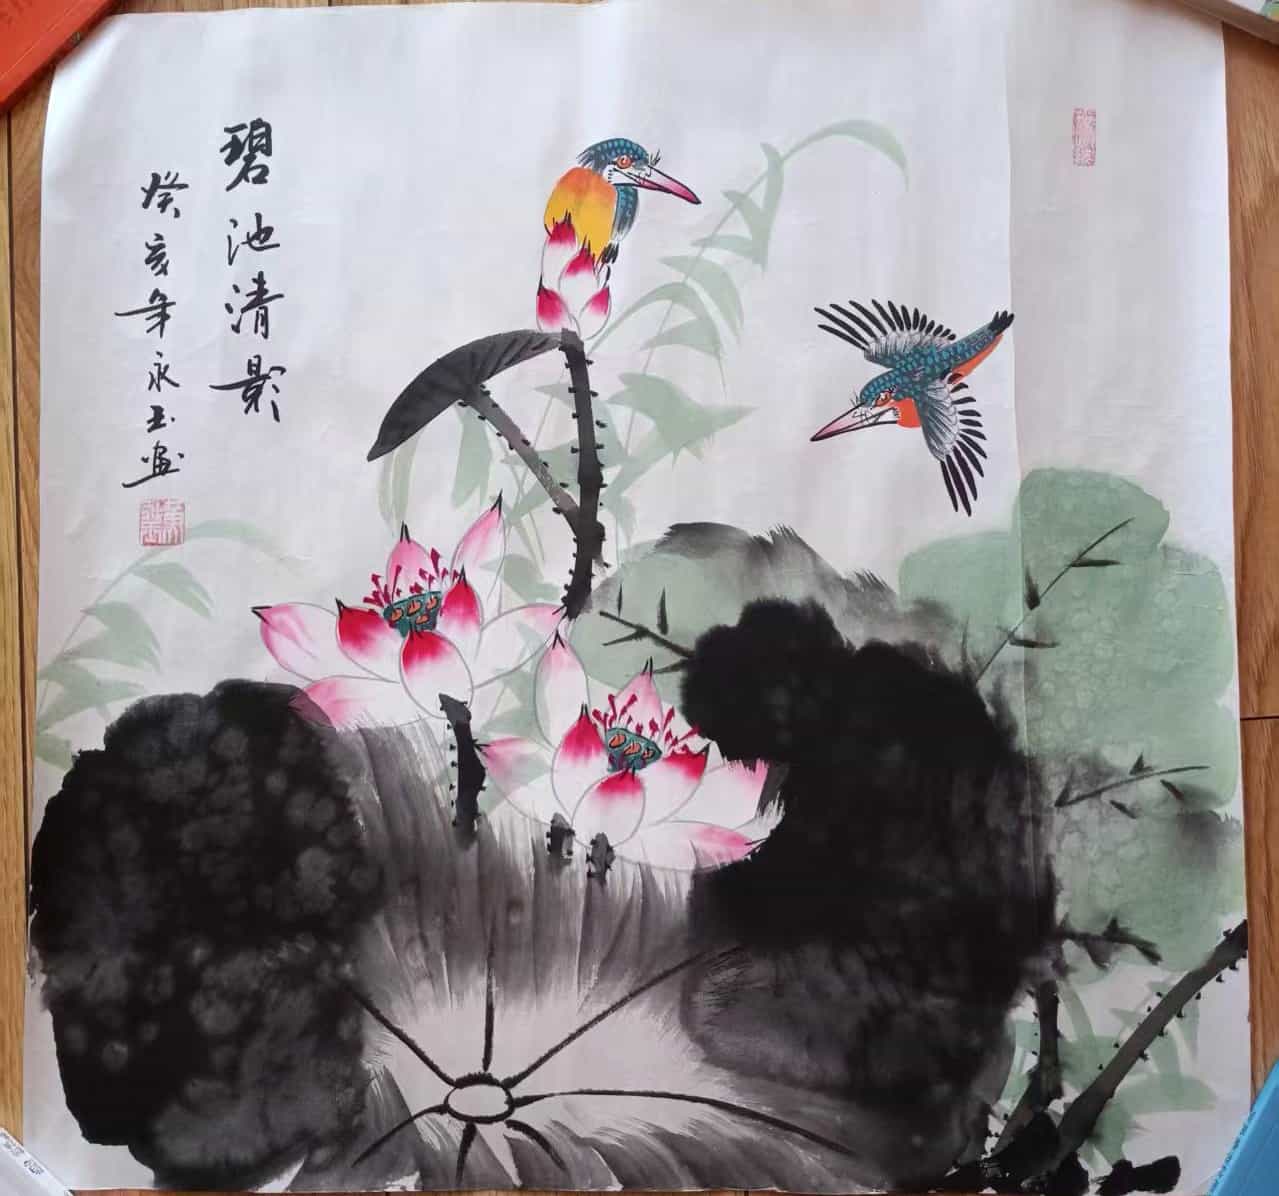 碧池清影
癸亥年永玉画